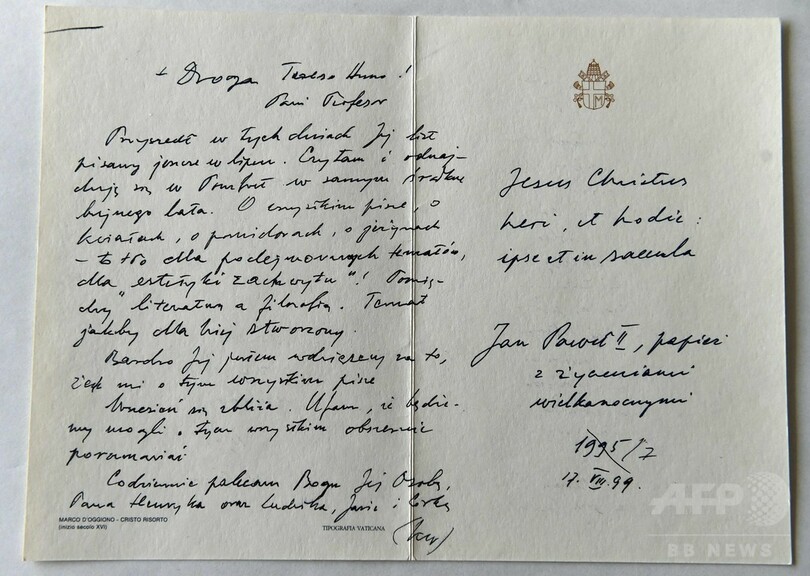 + Droga Tereso Anno!
Pani Profesor
Przyszedł w tych dniach Jej list
pisany jeszcze w lipcu. Czytam i odnaj-
duję się w Pomfret w samym środku
bujnego lata. O wszystkim pisze, o
kwiatach, o pomidorach, o jeżynach
– to tło dla podejmowanych tematów,
dla "estetyki zachwytu"! Pomię-
dzy literaturą a filozofią. Temat
jakby dla Niej stworzony.
Bardzo Jej jestem wdzięczny za to,
że mi o tym wszystkim pisze
Wrzesień się zbliża. Ufam, że będzie-
my mogli o tym wszystkim obszernie
porozmawiać
Codziennie polecam Bogu Jej Osobę,
Pana Henryka oraz Ludwika, Jasia i
MARCO D'OGGIONO - CRISTO RISORTO
(inizio secolo XVI)
TIPOGRAFIA VATICANA
Jesus Christus
heri, et hodie:
ipse et in saecula
Jan Paweł II, papież
z życzeniami
wielkanocnymi
1995/7
17. VIII. 99.
AFP
BB NEWS